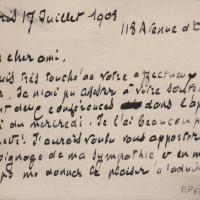 ris 17 Juillet 1908
118 Avenue d'
cher ami,
suis très touché de votre affectueu
Je n'ai pu assister à votre
deux conférences dans l'ap
di du mercredi. Je l'ai beaucoup
J'aurais voulu vous apporter
oignage de ma sympathie et en m
me donner le plaisir d'adm
P.P